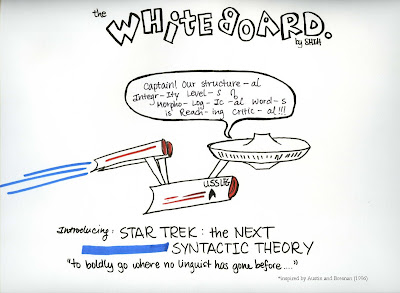 the WHITEBOARD.
by SHIH
Captain! Our structure-al
Integr-ity Level-s of
Morpho-Log-Ic-al Word-s
is Reach-ing Critic-al!!!
USS LFG
A
Introducing: STAR TREK: the NEXT
SYNTACTIC THEORY
"to boldly go where no linguist has gone before...."
*inspired by Austin and Bresnan (1996)